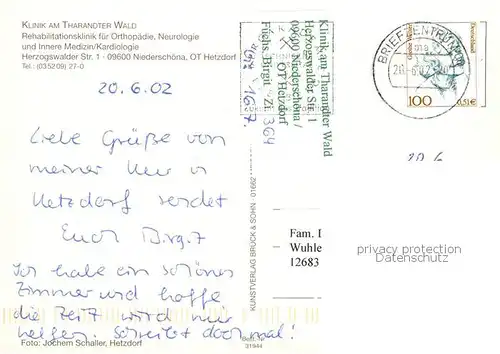 KLINIK AM THARANDTER WALD
Rehabilitationsklinik für Orthopädie, Neurologie
und Innere Medizin/Kardiologie
Herzogswalder Str. 1 · 09600 Niederschöna, OT Hetzdorf
Tel.: (035209) 27-0
20.6.02
Liebe Grüße von
meiner Kur in
Hetzdorf sendet
Euch Birgit
Ich habe ein schönes
Zimmer und hoffe
die Zeit wird mir
helfen. Schreibt doch mal!
Foto: Jochem Schaller, Hetzdorf
KUNSTVERLAG BRÜCK & SOHN · 01662
Best.-Nr.
31944
Klinik am Tharandter Wald
Herzogswalder Str. 1
09600 Niederschöna /
OT Hetzdorf
Fuchs, Birgit Zi. 364
BRIEFZENTRUM
20.-6.02
Deutschland
100
0,51€
Fam. D
Wuhle
12683
privacy protection
Datenschutz